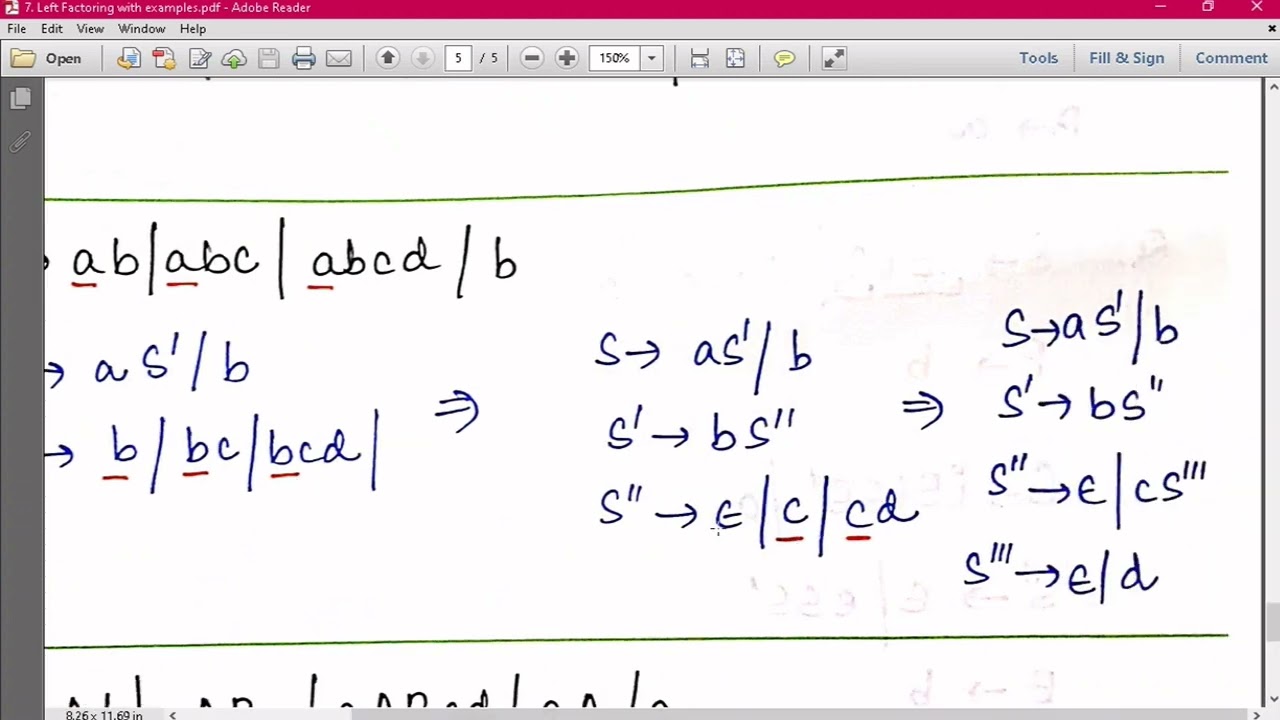 7. Left Factoring with examples.pdf - Adobe Reader
File Edit View Window Help
Open 5 / 5 150% Tools Fill & Sign Comment
→ ab | abc | abcd / b
→ a S' / b
→ b / bc | bcd |
⇒
S → aS' / b
S' → bS''
S'' → ϵ | c | cd
⇒
S → aS' / b
S' → bS''
S'' → ϵ | cS'''
S''' → ϵ / d
8.26 x 11.69 in